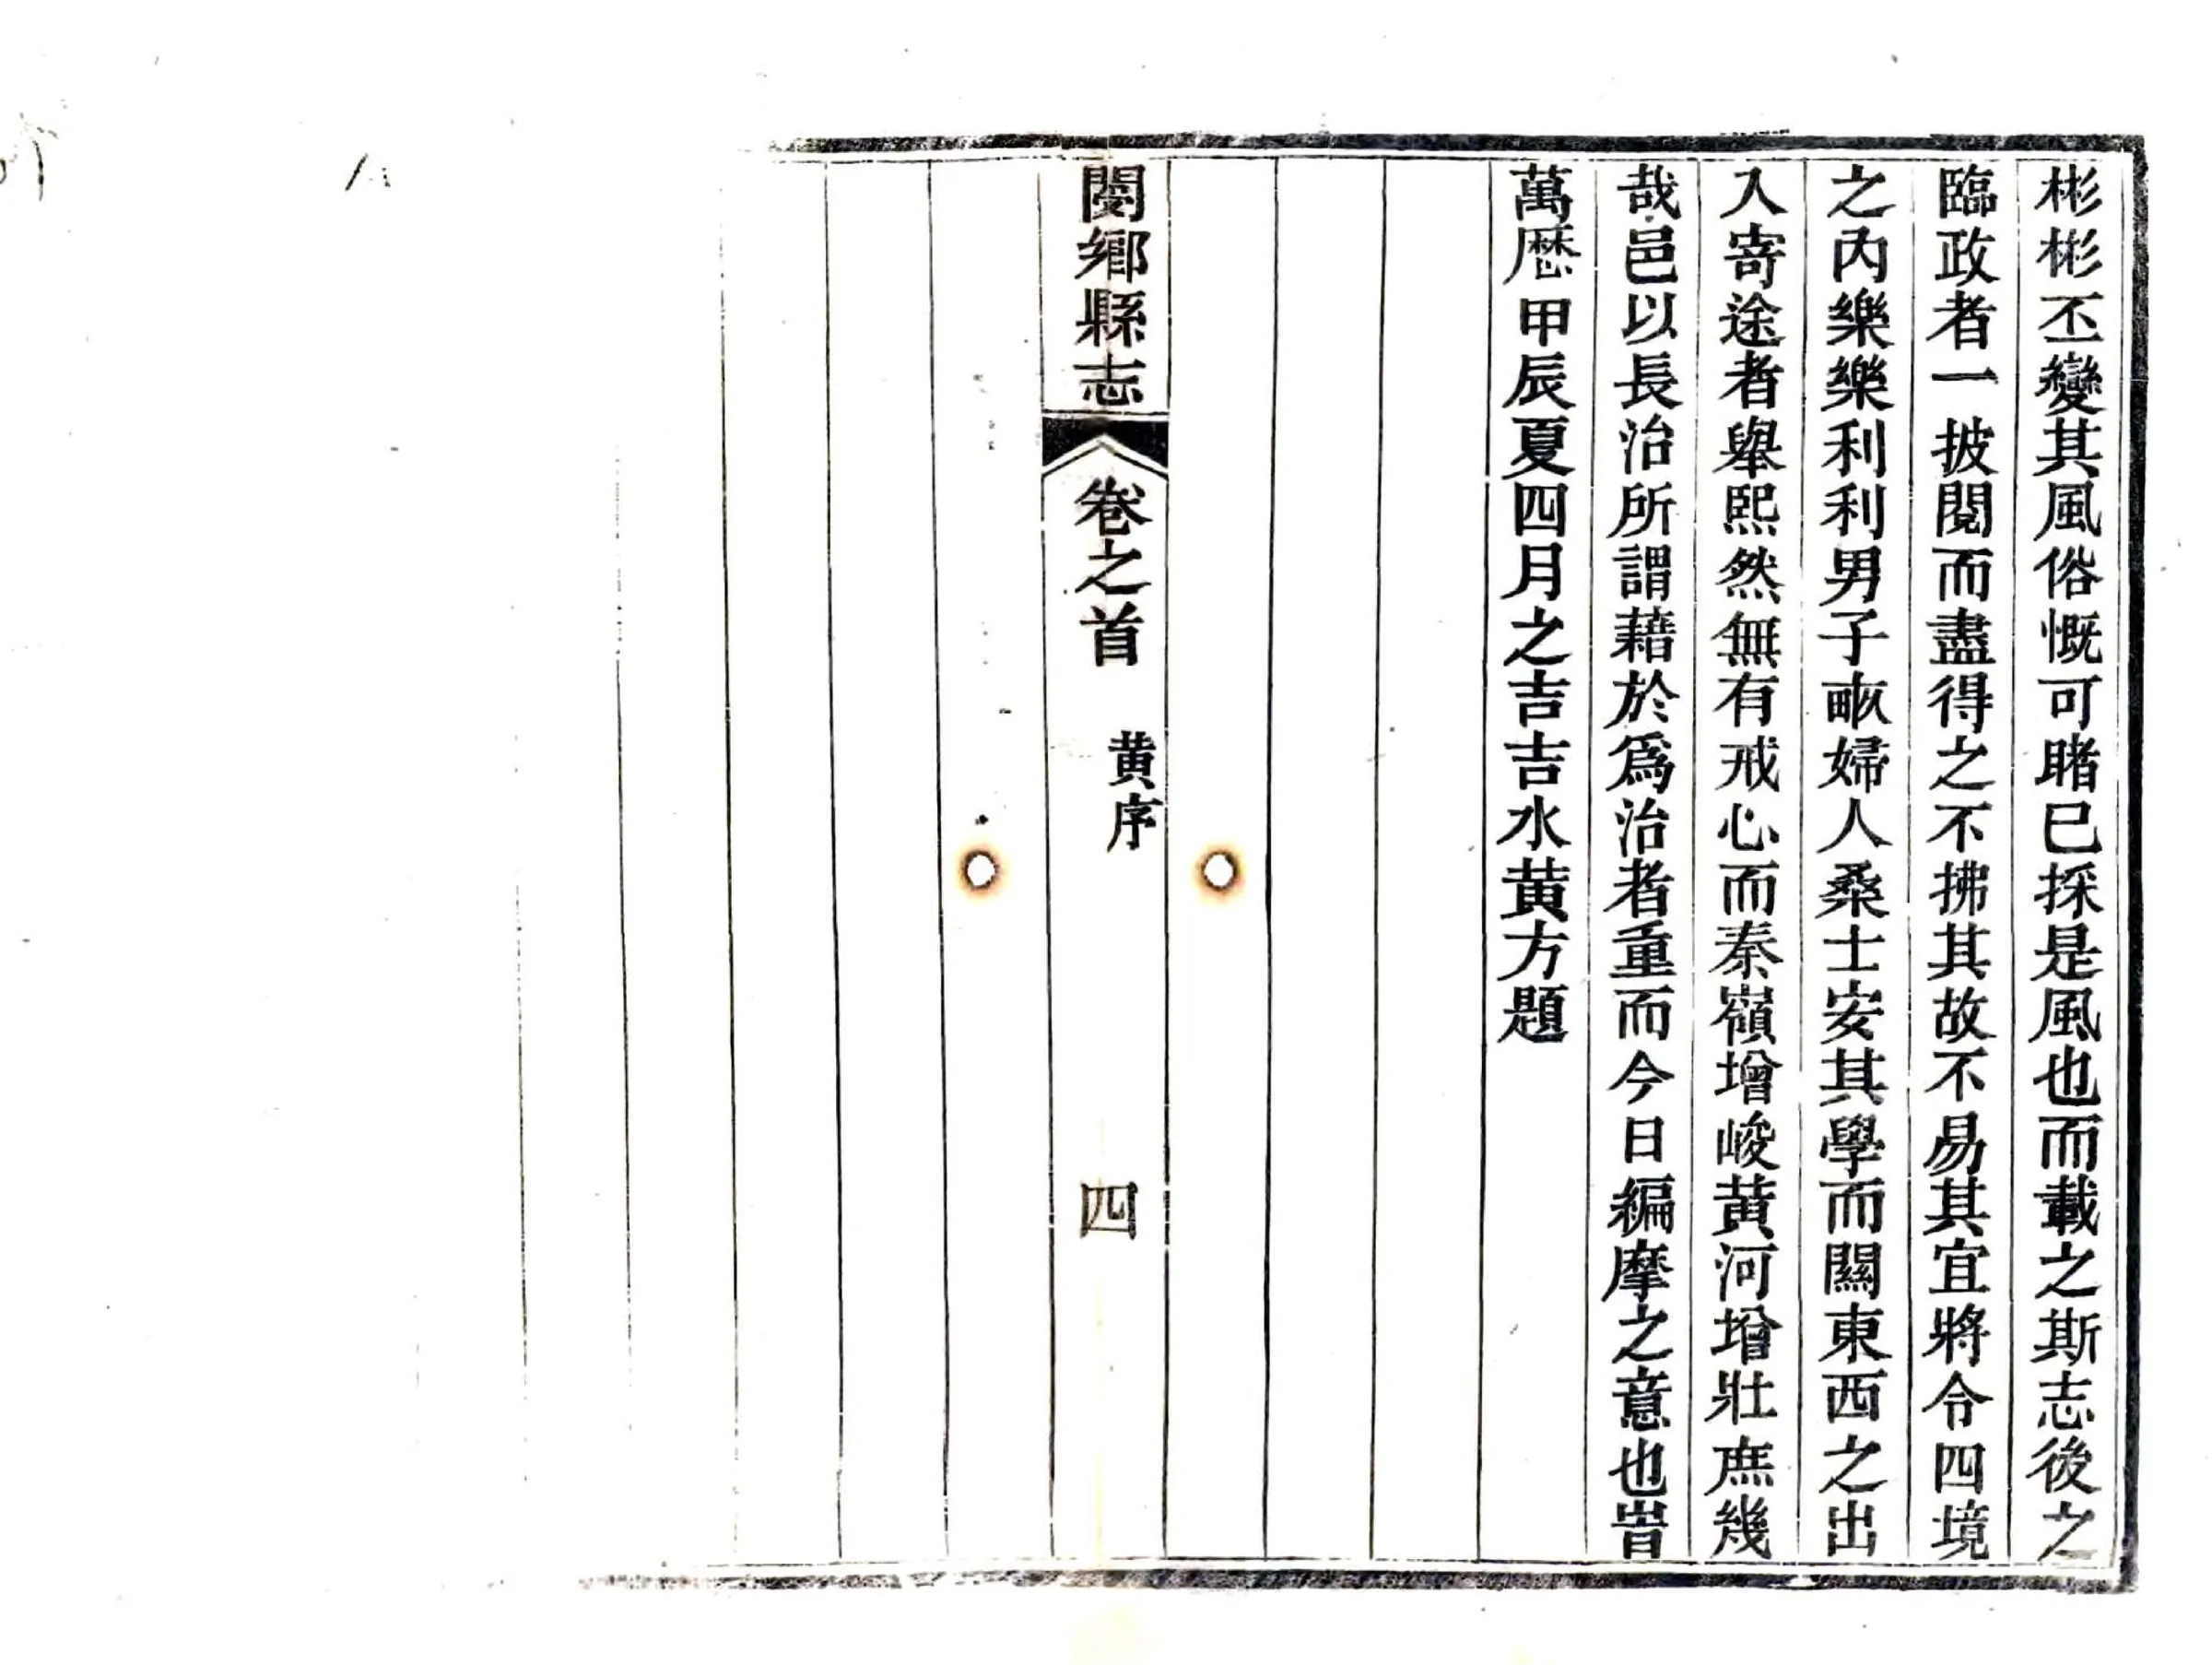 彬彬丕變其風俗慨可睹已採是風也而載之斯志後之
臨政者一披閱而盡得之不拂其故不易其宜將令四境
之內樂樂利利男子畞婦人桑士安其學而關東西之出
入寄途者舉熙然無有戒心而秦嶺增峻黃河增壯庶幾
哉邑以長治所謂藉於爲治者重而今日編摩之意也旹
萬曆甲辰夏四月之吉吉水黃方題
閿鄉縣志 卷之首 黃序 四